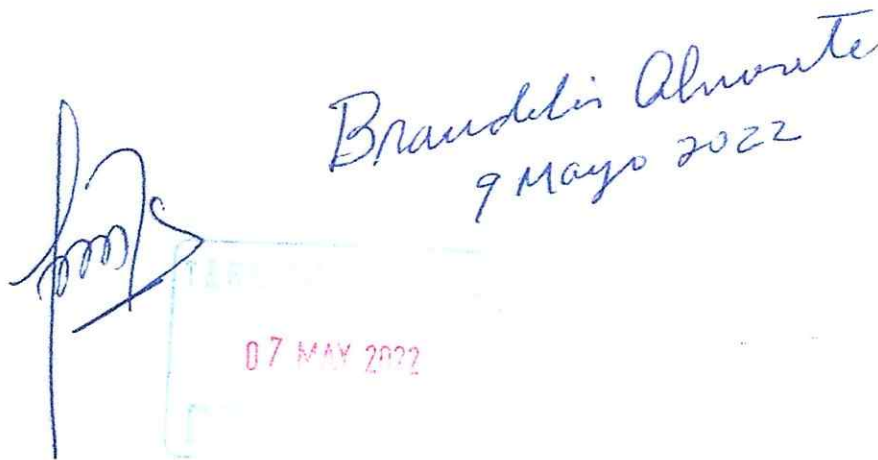 Braudelin Almonte
9 Mayo 2022
07 MAY 2022